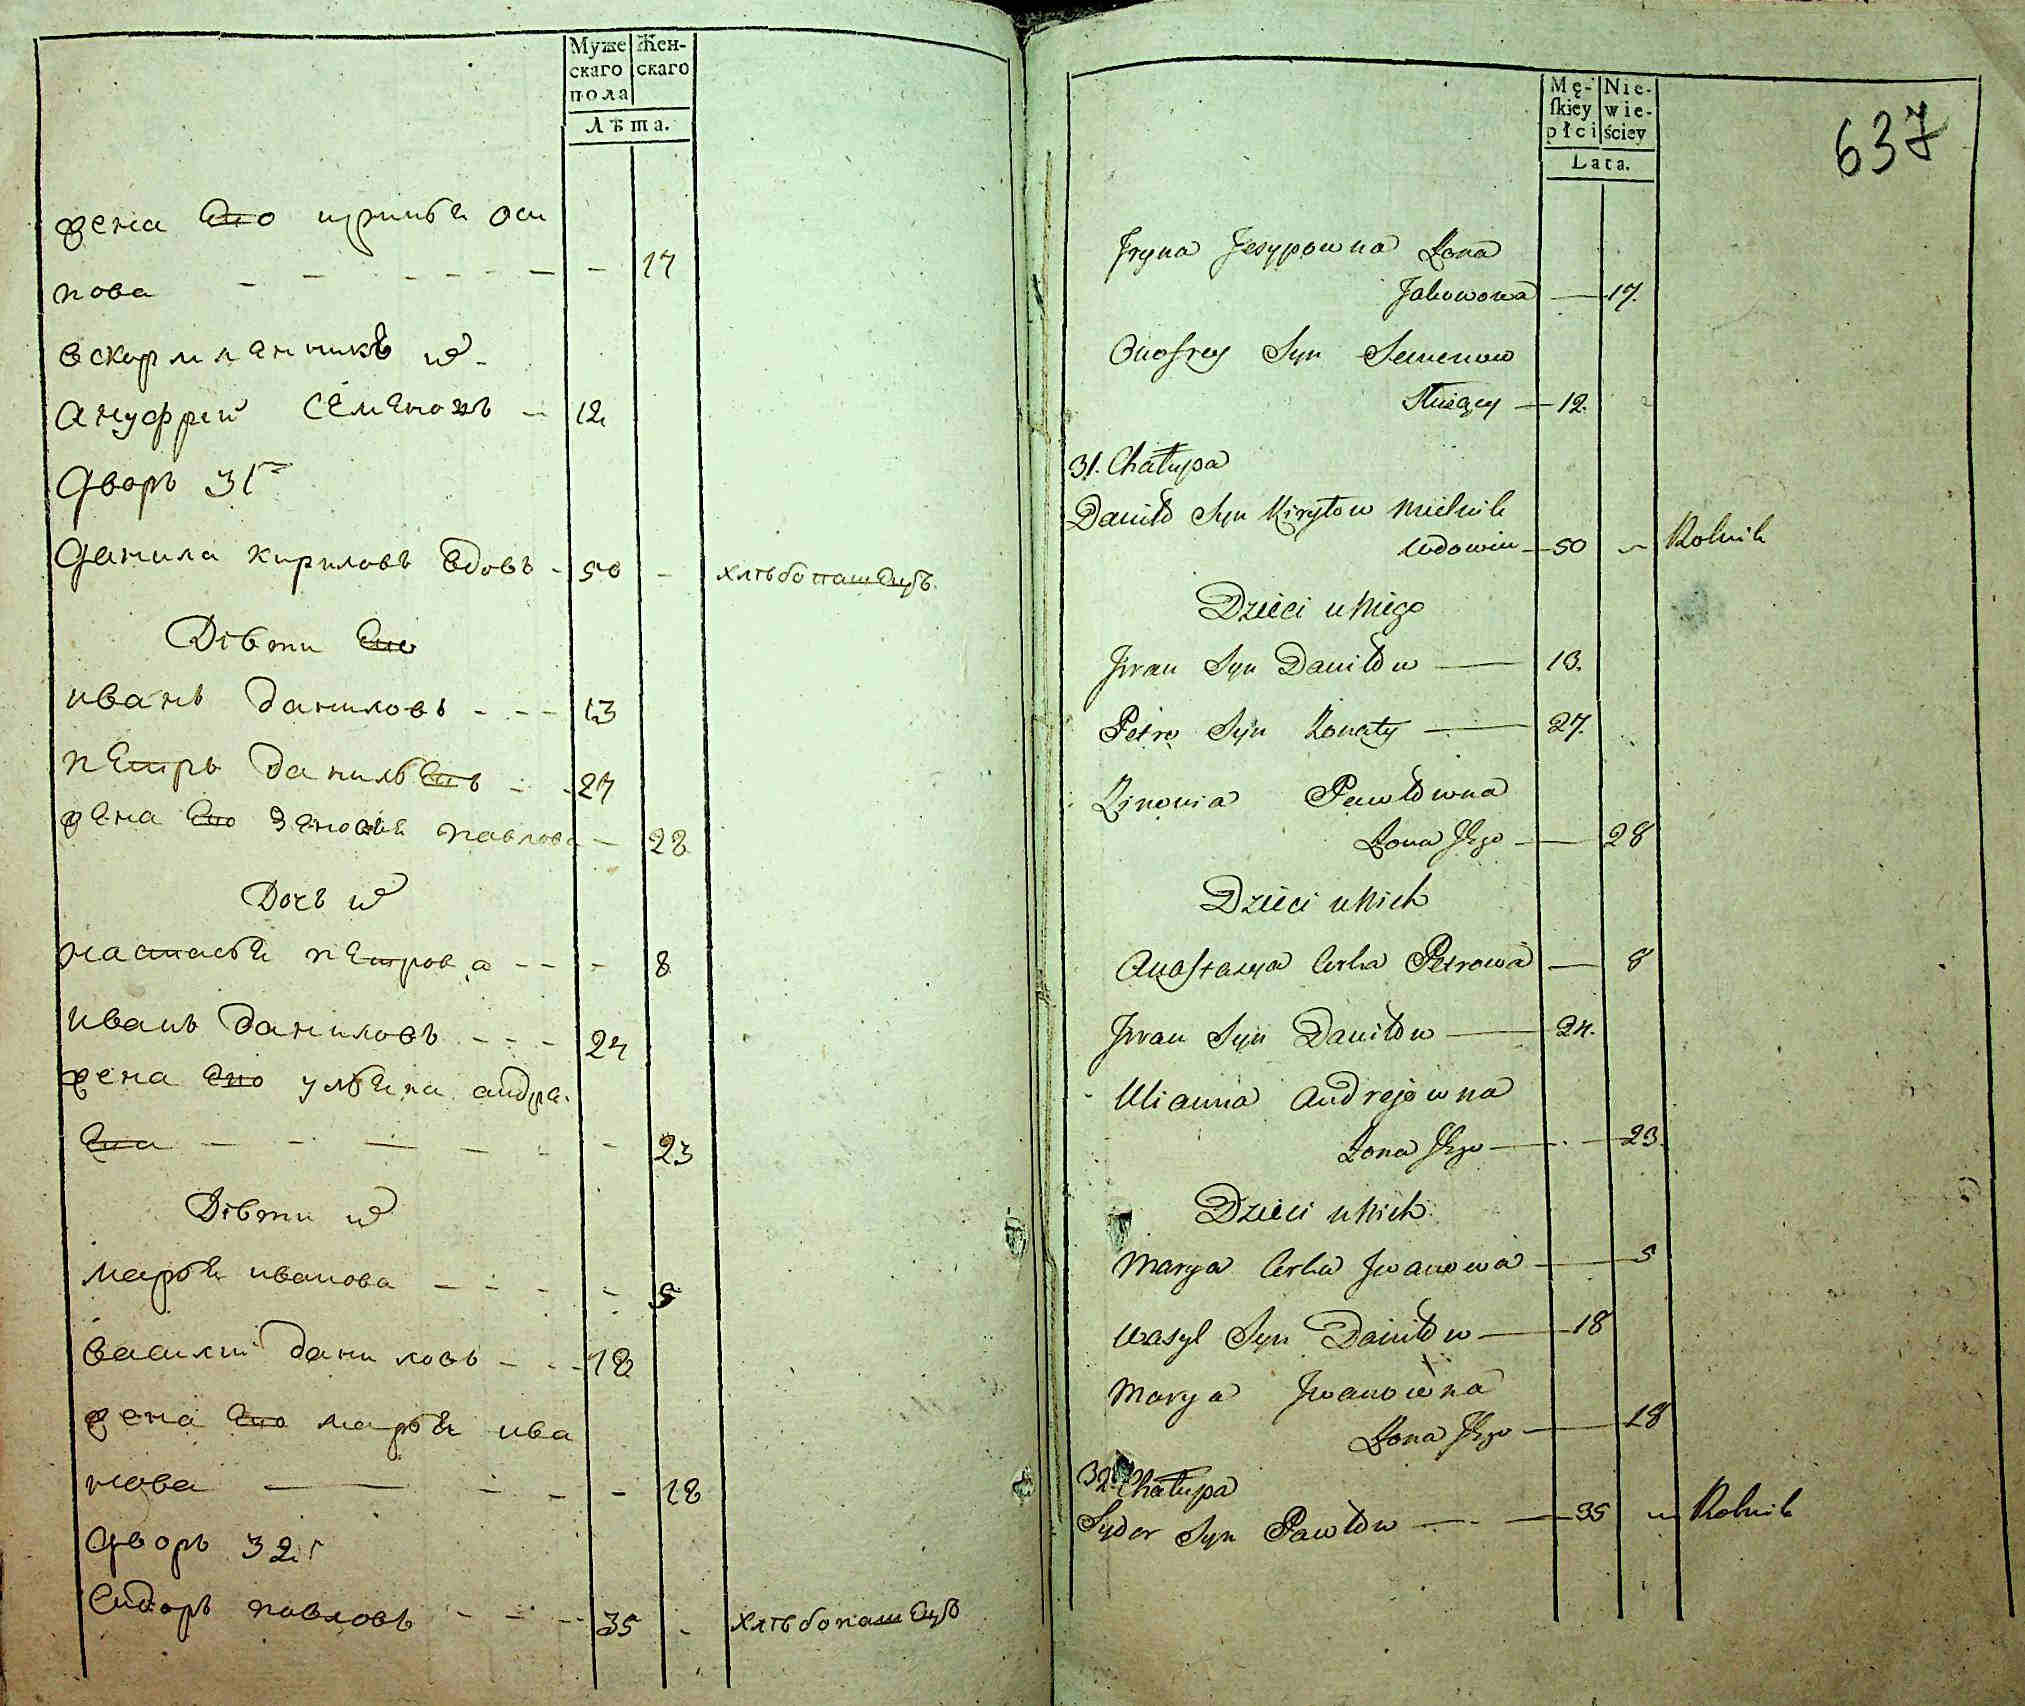 Муже
скаго
пола
Жен-
скаго
Лѣта.
жена Его ирина оси
пова - - - - - - - 17
вскормланникъ их
Ануфрей Семеновъ - 12
Дворъ 31г
Данила Кириловъ вдовъ - 50 - хлѣбопашецъ
Дѣти Его
иванъ даниловъ - - - 13
петръ данил - - 27
жена Его зеновия павлова - 28
Дочь их
настасья петрова - - - 8
иванъ даниловъ - - - 24
жена Его ульяна андре.
ева - - - - - - 23
Дѣти их
марья иванова - - - - 5
василий даниловъ - - - 18
жена Его марья ива
нова - - - - - 18
Дворъ 32г
Сидоръ павловъ - - - 35 - хлѣбопашецъ
Mę-
skiey
płci
Nie-
wie-
ściey
Lata.
637
Iryna Jesypowna Żona
Jakowowa — 17.
Onofrey Syn Semenow
Służący — 12.
31. Chałupa
Daniło Syn Kiryłow Mielnik
Wdowiec — 50 Rolnik
Dzieci u Niego
Iwan Syn Daniłow — 13.
Petro Syn Żonaty — 27.
Zinowia Pawłowna
Żona Jego — 28
Dzieci u Nich
Anastasya Corka Petrowa — 8
Iwan Syn Daniłow — 24.
Ulianna Andrejowna
Żona Jego — 23.
Dzieci u Nich
Marya Corka Iwanowa — 5
Wasyl Syn Daniłow — 18
Marya Iwanowna
Żona Jego — 18
32. Chałupa
Sydor Syn Pawłow — 35 Rolnik